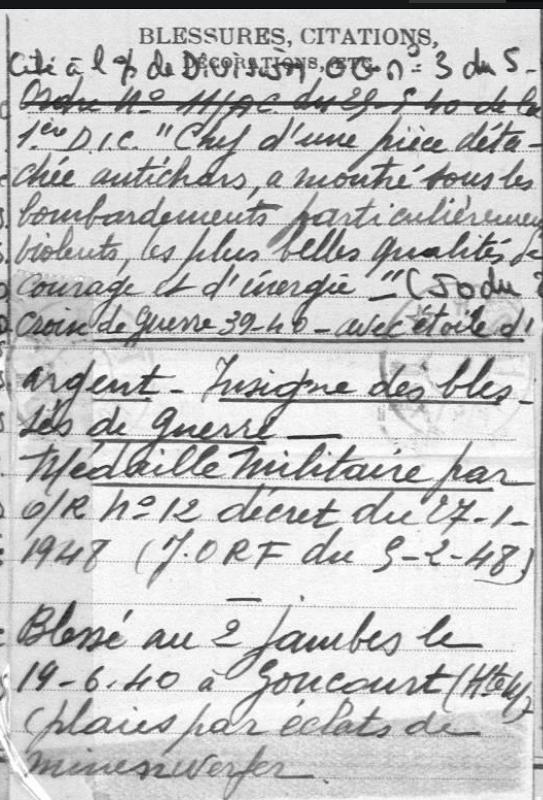 BLESSURES, CITATIONS,
DÉCORATIONS, ETC.
Cité à l' de Division OG n° 3 du 5-
Ordre N° 11/AC. du 29-5 40 de la
1ère D.I.C. "Chef d'une pièce déta-
chée antichars, a montré sous les
bombardements particulièrement
violents, les plus belles qualités de
courage et d'énergie" (JO du
Croix de Guerre 39-40 - avec étoile d'
argent - Insigne des bles-
sés de Guerre —
Médaille Militaire par
O/R N° 12 décret du 27-1-
1948 (J.ORF du 5-2-48)
—
Blessé au 2 jambes le
19-6.40 à Goncourt (Hte M)
(plaies par éclats de
minenwerfer.